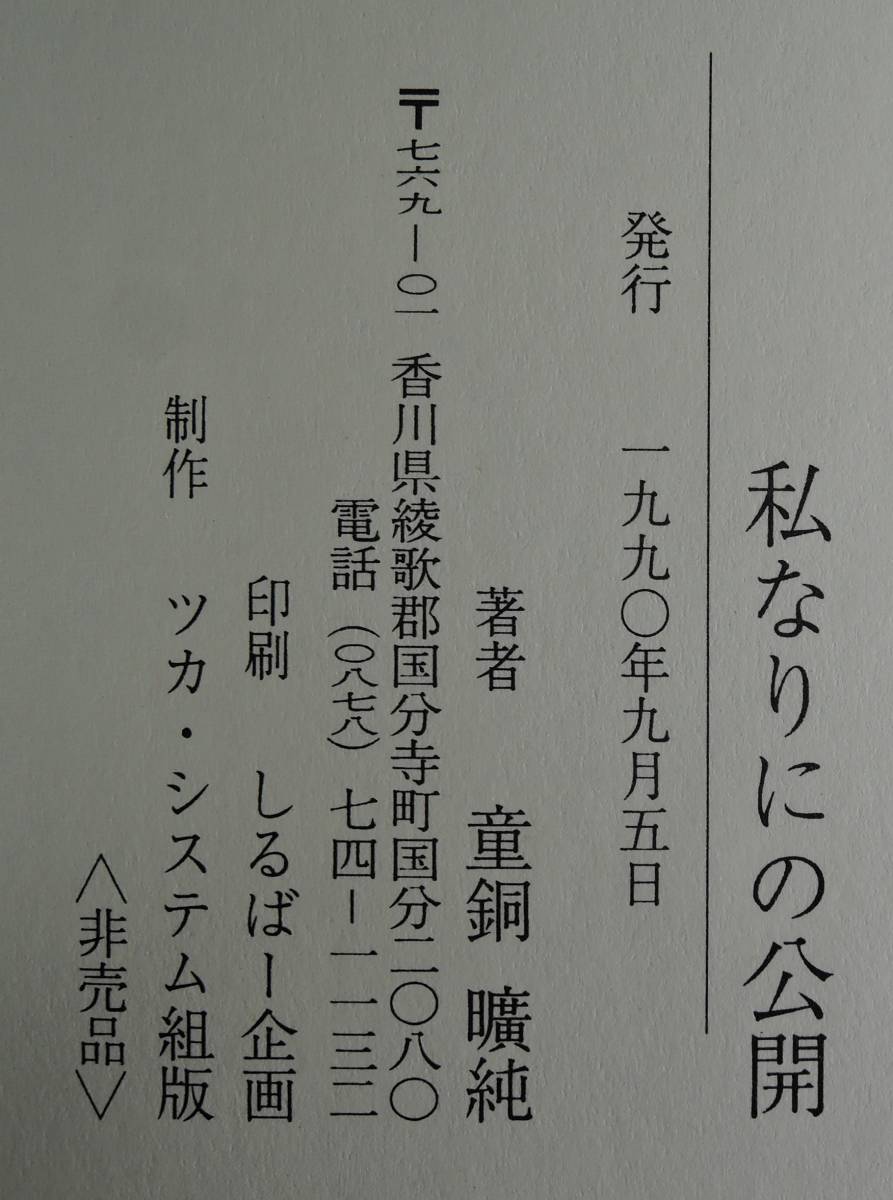 私なりにの公開
発行 一九九〇年九月五日
著者 童銅 曠純
〒七六九―〇一 香川県綾歌郡国分寺町国分二〇八〇
電話（〇八七八）七四―一一三二
印刷 しるばー企画
制作 ツカ・システム組版
〈非売品〉